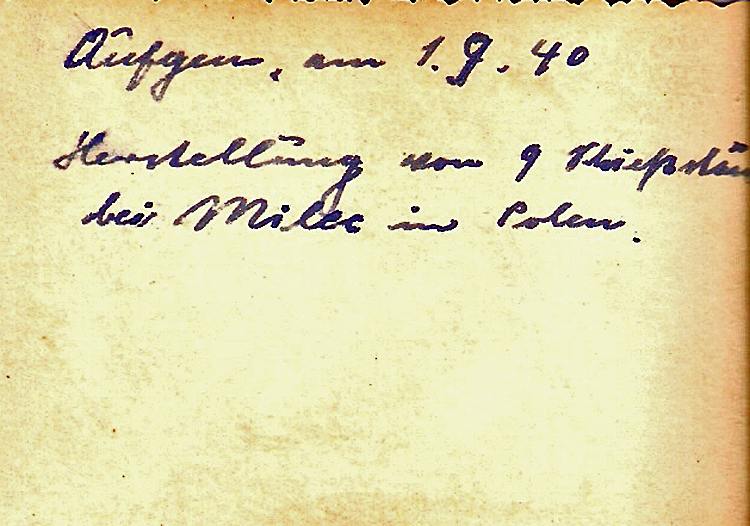 Aufgen. am 1. 9. 40
Herstellung von 9 Schießstän
bei Milec in Polen.